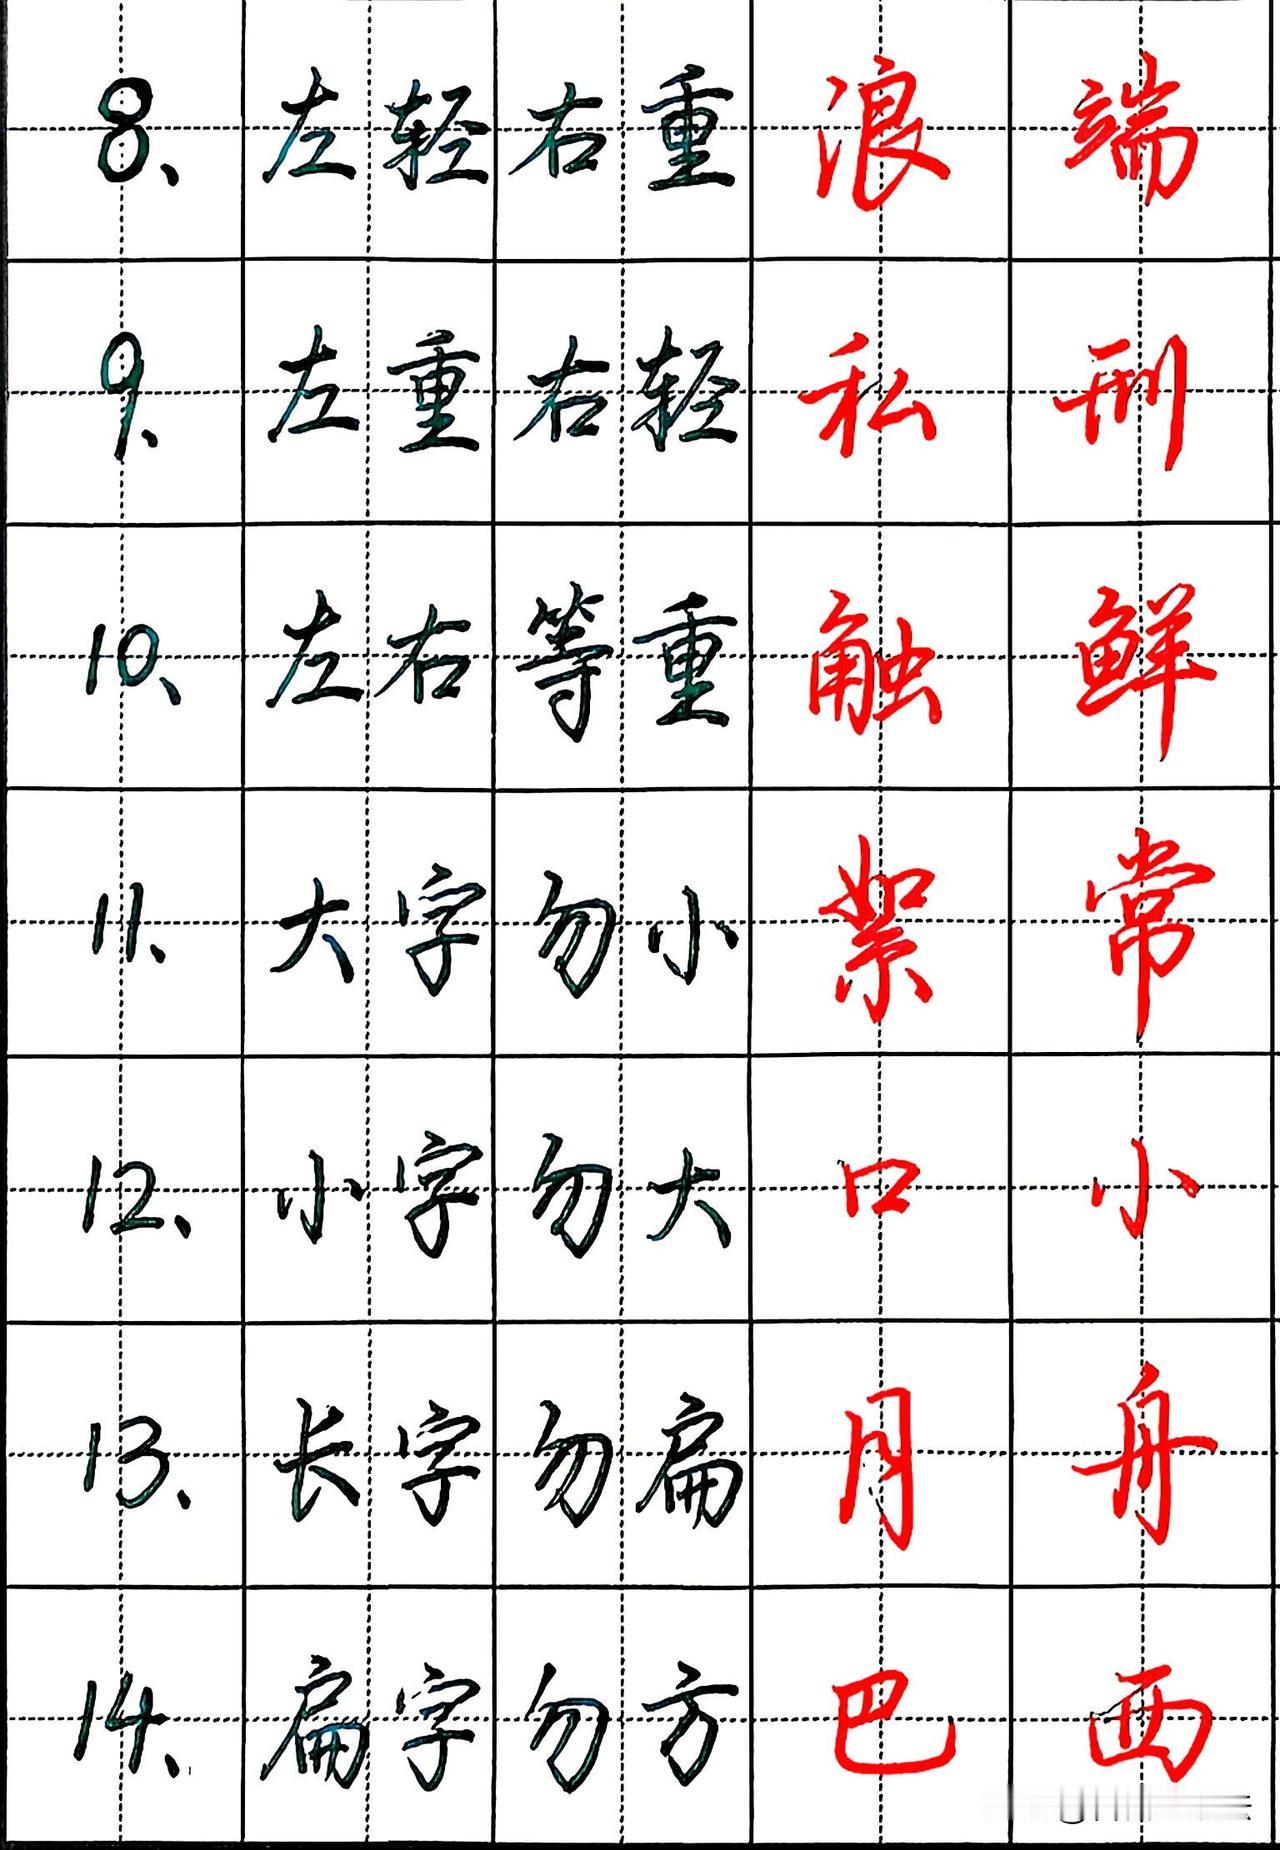 8、左轻右重 浪 端
9、左重右轻 私 刑
10、左右等重 触 鲜
11、大字勿小 絮 常
12、小字勿大 口 小
13、长字勿扁 月 舟
14、扁字勿方 巴 西